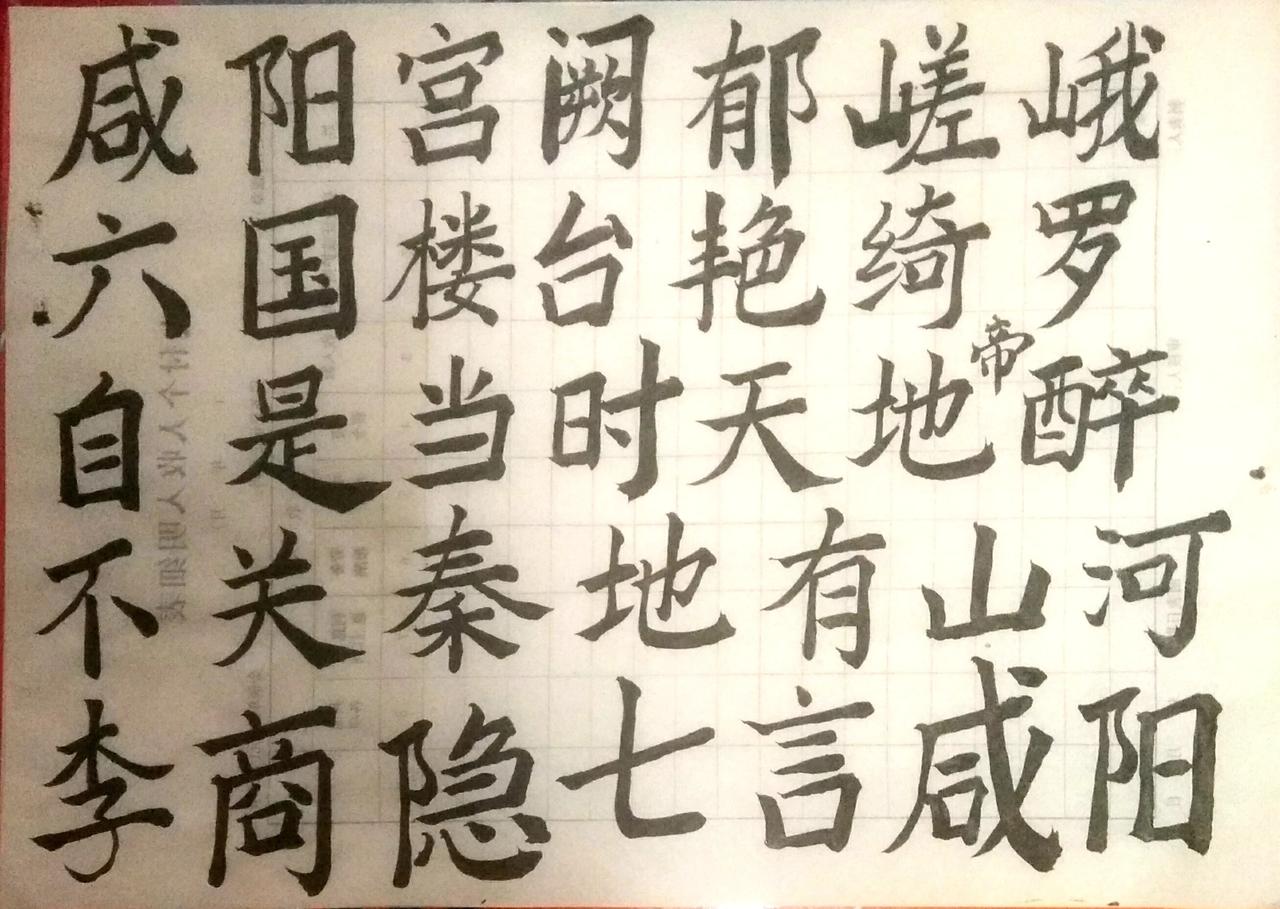 咸阳宫阙郁嵯峨
六国楼台艳绮罗
自是当时天地帝醉
不关秦地有山河
李商隐七言咸阳